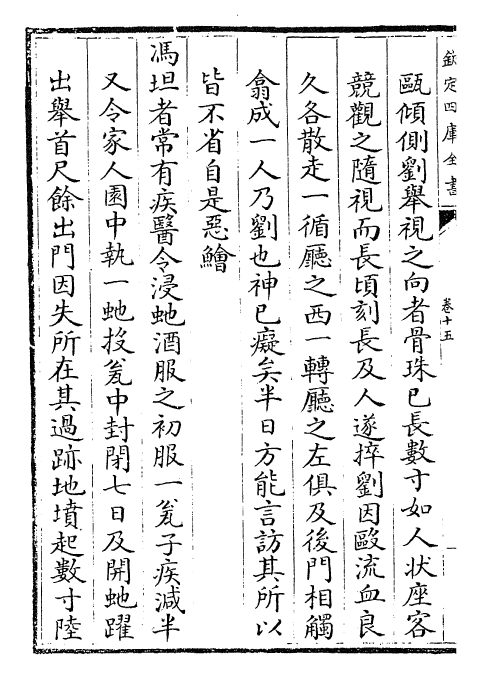 欽定四庫全書
卷十五
甌傾側劉舉視之向者骨珠已長數寸如人狀座客
競觀之隨視而長頃刻長及人遂捽劉因毆流血良
久各散走一循廳之西一轉廳之左俱及後門相觸
翕成一人乃劉也神已癡矣半日方能言訪其所以
皆不省自是惡鱠
馮坦者常有疾醫令浸虵酒服之初服一瓮子疾減半
又令家人園中執一虵投瓮中封閉七日及開虵躍
出舉首尺餘出門因失所在其過跡地墳起數寸陸